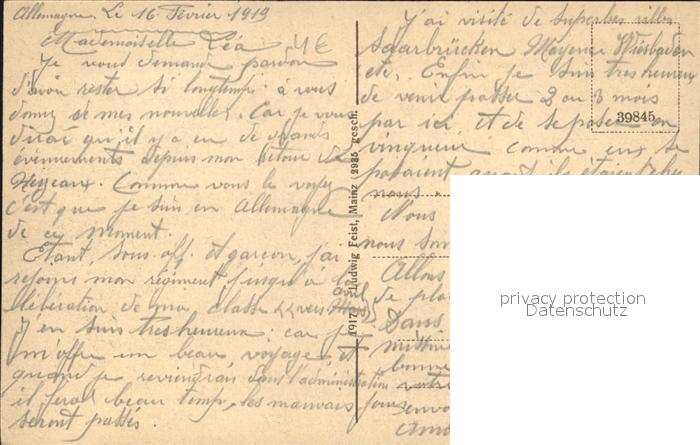 Allemagne, Le 16 Février 1919
Mademoiselle Léa
4€
Je vous demande pardon
d'avoir rester si longtemps à vous
donner de mes nouvelles. Car je vous
dirai qu'il y a eu de grands
évènements depuis mon retour de
Comme vous le voyez
c'est que je suis en Allemagne
de ce moment.
Etant sous off. et garçon, j'ai
rejoins mon régiment jusqu'à la
libération de ma classe vers
J'en suis tres heureux car je
m'offre un beau voyage et
quand je reviendrai dans l'administration
il fera beau temps, les mauvais
seront passés.
1917 Ludwig Feist, Mainz 2935 gesch.
J'ai visité de superbes villes
Saarbrücken Mayence Wiesbaden
etc. Enfin je suis tres heureux
de venir passer 2 ou 3 mois
par ici et de se poser en
39845
vinqueur comme eux se
posaient quand ils étaient chez
nous.
Nous
nous som
Allons
de
Dans
votre
envo
privacy protection
Datenschutz